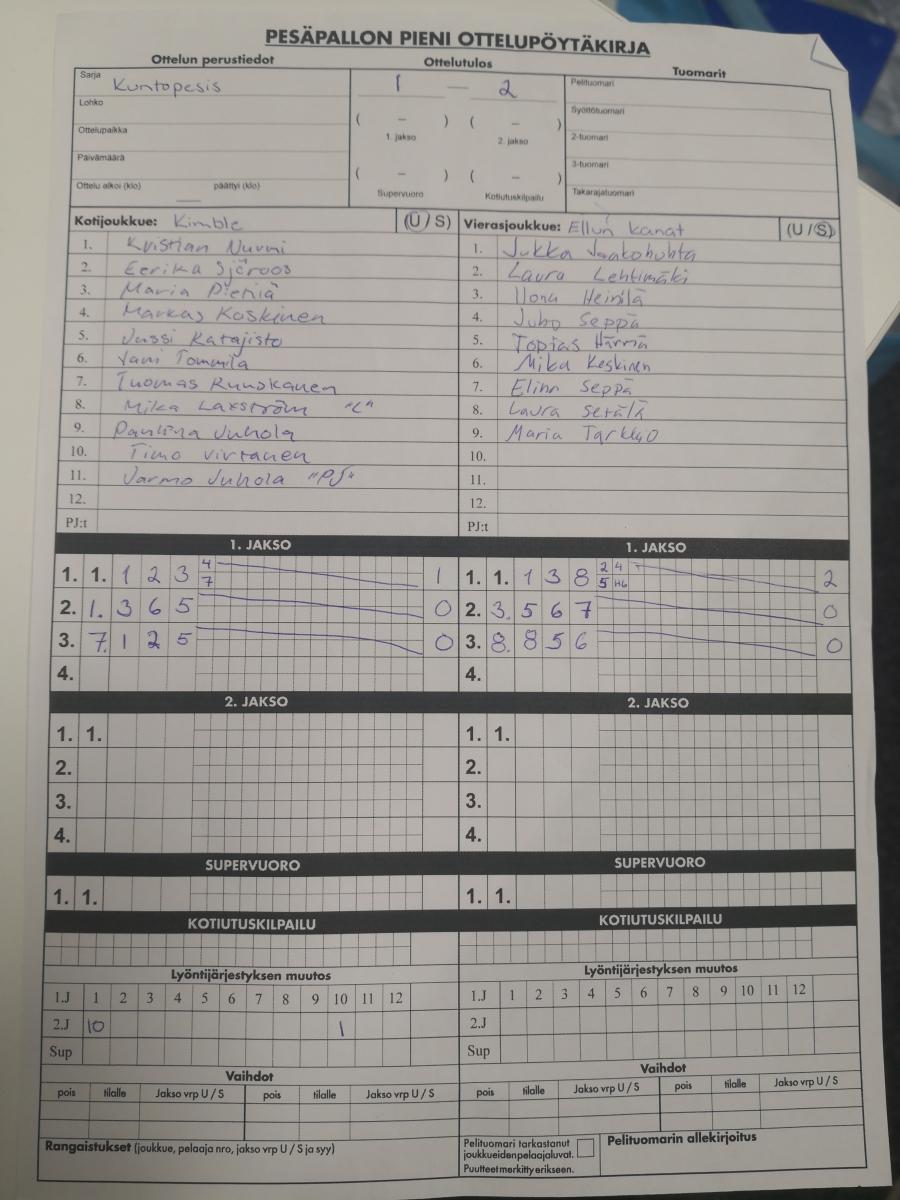 PESÄPALLON PIENI OTTELUPÖYTÄKIRJA
Ottelun perustiedot Ottelutulos Tuomarit
Sarja Kuntopesis
Lohko
Ottelupaikka
Päivämäärä
Ottelu alkoi (klo) päättyi (klo)
1 — 2
( – ) ( – )
1. jakso 2. jakso
( – ) ( – )
Supervuoro Kotiutuskilpailu
Pelituomari
Syöttötuomari
2-tuomari
3-tuomari
Takarajatuomari
Kotijoukkue: Kimble (U / S)
1. Kristian Nurmi
2. Eerika Sjöroos
3. Maria Pieniä
4. Markas Koskinen
5. Jussi Katajisto
6. Jani Tommila
7. Tuomas Ruuskanen
8. Mika Laxström "C"
9. Pauliina Juhola
10. Timo Virtanen
11. Jarmo Juhola "PJ"
12.
PJ:t
Vierasjoukkue: Ellun kanat (U / S)
1. Jukka Jaakohuhta
2. Laura Lehtimäki
3. Ilona Heinilä
4. Juho Seppä
5. Topias Härmä
6. Mika Keskinen
7. Elina Seppä
8. Laura Setälä
9. Maria Tarkkio
10.
11.
12.
PJ:t
1. JAKSO 1. JAKSO
1. 1. 1 2 3 4 7 1
2. 1. 3 6 5 0
3. 7. 1 2 5 0
4.
1. 1. 1 3 8 2 4 5 2
2. 3. 5 6 7 0
3. 8. 8 5 6 0
4.
2. JAKSO 2. JAKSO
1. 1. 1. 1.
2. 2.
3. 3.
4. 4.
SUPERVUORO SUPERVUORO
1. 1. 1. 1.
KOTIUTUSKILPAILU KOTIUTUSKILPAILU
Lyöntijärjestyksen muutos Lyöntijärjestyksen muutos
1.J 1 2 3 4 5 6 7 8 9 10 11 12 1.J 1 2 3 4 5 6 7 8 9 10 11 12
2.J 10 1 2.J
Sup Sup
Vaihdot Vaihdot
pois tilalle Jakso vrp U / S pois tilalle Jakso vrp U / S pois tilalle Jakso vrp U / S pois tilalle Jakso vrp U / S
Rangaistukset (joukkue, pelaaja nro, jakso vrp U / S ja syy)
Pelituomari tarkastanut
joukkueidenpelaajaluvat.
Puutteet merkitty erikseen.
Pelituomarin allekirjoitus